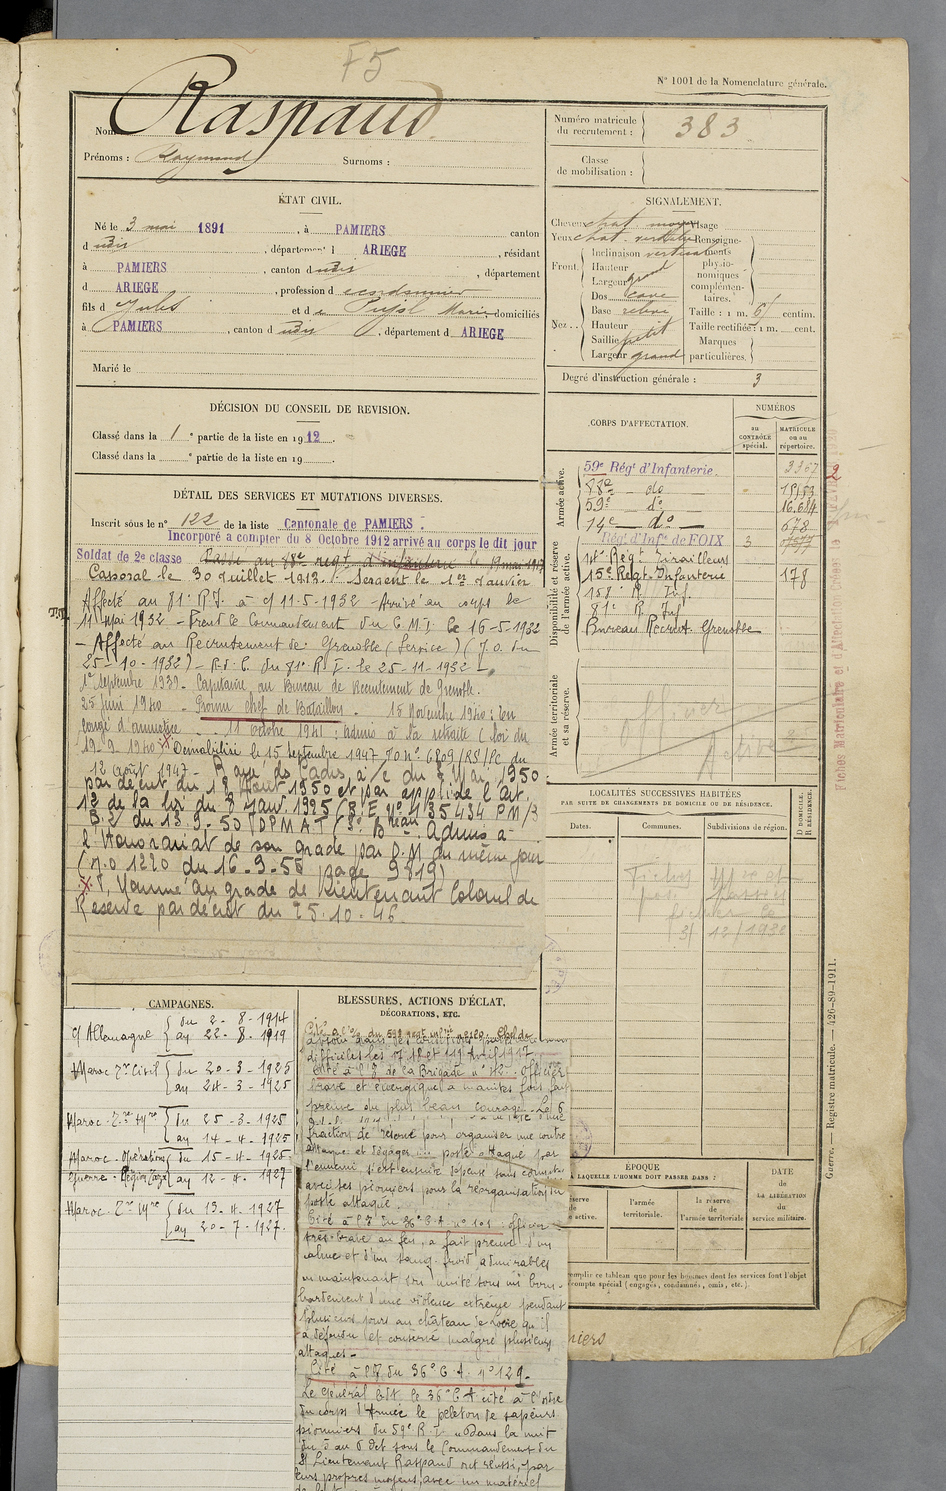 F5
N° 1001 de la Nomenclature générale.
Nom Raspaud
Prénoms : Raymond Surnoms :
Numéro matricule du recrutement : 383
Classe de mobilisation :
ÉTAT CIVIL.
Né le 3 mai 1891, à PAMIERS canton
d udis, département d ARIEGE, résidant
à PAMIERS, canton d udis, département
d ARIEGE, profession d
fils d Jules et d e Pujol Marie domiciliés
à PAMIERS, canton d udis, département d ARIEGE
Marié le
SIGNALEMENT.
Cheveux chat. moyen Visage
Yeux chat. Renseignements physionomiques complémentaires.
Front. Inclinaison vertical
Hauteur
Largeur grand
Nez. Dos cave
Base relevé
Hauteur
Saillie petit
Largeur grand
Taille : 1 m. 61 centim.
Taille rectifiée : 1 m. cent.
Marques particulières.
Degré d'instruction générale : 3
DÉCISION DU CONSEIL DE REVISION.
Classé dans la 1e partie de la liste en 1912.
Classé dans la e partie de la liste en 19
CORPS D'AFFECTATION.
NUMÉROS
au CONTRÔLE spécial.
MATRICULE ou au répertoire.
Armée active.
59e Régt d'Infanterie.
88e — do —
59e — do —
14e — do — 678
Disponibilité et réserve de l'armée active.
Régt d'Infie de FOIX 3
Régt Tirailleurs
15e Régt Infanterie 178
158e R Inf
81e R Inf
Bureau Recrut. Grenoble
Armée territoriale et sa réserve.
Officier
Active
DÉTAIL DES SERVICES ET MUTATIONS DIVERSES.
Inscrit sous le n° 122 de la liste Cantonale de PAMIERS.
Incorporé a compter du 8 Octobre 1912 arrivé au corps le dit jour
Soldat de 2e classe Passé au 88e regt d'infanterie le
Caporal le 30 Juillet 1913. Sergent le 1er Janvier
Affecté au 81e R.I. à c/ 11-5-1932 - Arrivé au corps le
11 mai 1932 - Prend le Commandement du C.M.I. le 16-5-1932
- Affecté au Recrutement de Grenoble (Service) (J.O. du
25-10-1932) - R.d.C. du 81e R.I. le 25-11-1932 -
1er Septembre 1939. Capitaine au Bureau de Recrutement de Grenoble.
25 Juin 1940 - Promu chef de Bataillon. - 15 Novembre 1940 : En
congé d'armistice 11 octobre 1941 : admis à la retraite (loi du
19-9-1940 Démobilisé le 15 Septembre 1947
12 août 1947 - Rayé des Cadres à/c du 3 Mai 1950
par décret du 18 Août 1950 et par application de l'art.
12 de la loi du 8 Janv. 1925 (B.E. N° 135434 PM/3
B.2 du 13-9-50 (DPMAT (3e Bureau. Admis à
l'Honorariat de son grade par D.M. du même jour
(J.O 1220 du 16-9-50 page 9819)
Nommé au grade de Lieutenant Colonel de
Réserve par décret du 25-10-46.
LOCALITÉS SUCCESSIVES HABITÉES
PAR SUITE DE CHANGEMENTS DE DOMICILE OU DE RÉSIDENCE.
Dates. Communes. Subdivisions de région. D DOMICILE. R RÉSIDENCE.
12/1930
CAMPAGNES.
c/ Allemagne du 2-8-1914
au 22-8-1919
Maroc Zne Civil du 20-3-1925
au 24-3-1925
Maroc. Zne Myre du 25-3-1925
au 14-4-1925
Maroc. Opérations du 15-4-1925
Guerre. Région Taza au 12-4-1927
Maroc. Zne Myre du 13-4-1927
au 20-7-1927.
BLESSURES, ACTIONS D'ÉCLAT,
DÉCORATIONS, ETC.
difficiles les 17 18 et 19 Avril 1917.
Cité à l'O. de la Brigade n° 42. Officier
brave et énergique a maintes fois fait
preuve du plus beau courage. Le 6
fraction de réserve pour organiser une contre
attaque et dégager poste attaqué par
l'ennemi s'est ensuite dépensé sans compter
avec ses pionniers pour la réorganisation du
poste attaqué.
Cité à l'O. du 36e C.A. n° 101 : officier
très brave au feu, a fait preuve d'un
calme et d'un sang froid admirables
en maintenant son unité sous un bom-
bardement d'une violence extrême pendant
plusieurs jours au château de qu'il
a défendu et conservé malgré plusieurs
attaques -
Cité à l'O. du 36e C.A. n° 129.
Le Général Cdt le 36e C.A. cité à l'ordre
du corps d'Armée le peloton de sapeurs
pionniers du 59e R.I. "Dans la nuit
du 5 au 6 Oct sous le Commandement du
S/ Lieutenant Raspaud ont réussi, par
leurs propres moyens, avec un matériel
ÉPOQUE
À LAQUELLE L'HOMME DOIT PASSER DANS :
l'armée territoriale.
la réserve de l'armée territoriale
DATE de LA LIBÉRATION du service militaire.
remplir ce tableau que pour les hommes dont les services font l'objet
compte spécial (engagés, condamnés, omis, etc.).
Guerre. — Registre matricule. — 426-89-1911.